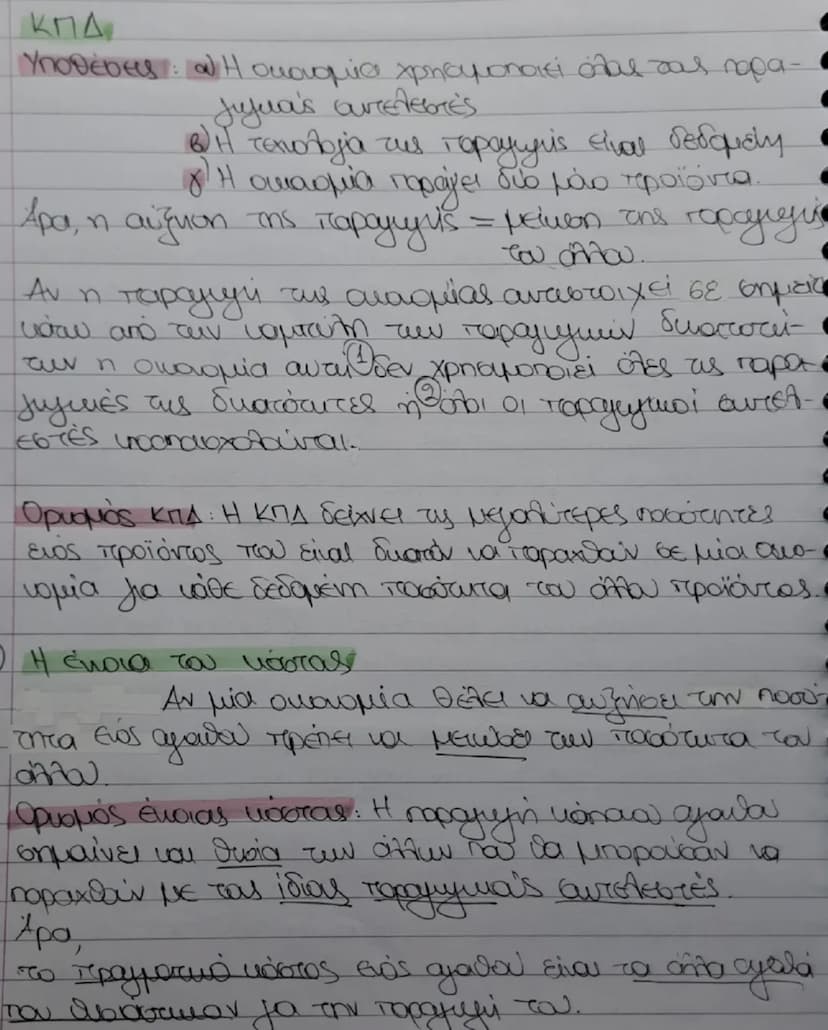 ΚΠΔ
Υποθέσεις: α) Η οικονομία χρησιμοποιεί όλους τους παρα-
γωγικούς συντελεστές
β) Η τεχνολογία της παραγωγής είναι δεδομένη
γ) Η οικονομία παράγει δύο μόνο προϊόντα.
Άρα, η αύξηση της παραγωγής = μείωση της παραγωγής
του άλλου.
Αν η παραγωγή της οικονομίας αντιστοιχεί σε σημείο
κάτω από την καμπύλη των παραγωγικών δυνατοτή-
των η οικονομία αυτή ① δεν χρησιμοποιεί όλες τις παρα-
γωγικές της δυνατότητες ή ② όλοι οι παραγωγικοί συντελ-
εστές υποαπασχολούνται.
Ορισμός ΚΠΔ: Η ΚΠΔ δείχνει τις μεγαλύτερες ποσότητες
ενός προϊόντος που είναι δυνατόν να παραχθούν σε μία οικο-
νομία για κάθε δεδομένη ποσότητα του άλλου προϊόντος.
) Η έννοια του κόστους
Αν μία οικονομία θέλει να αυξήσει την ποσό-
τητα ενός αγαθού πρέπει να μειωθεί την ποσότητα του
άλλου.
Ορισμός έννοιας κόστους: Η παραγωγή κάποιου αγαθού
σημαίνει και θυσία των άλλων που θα μπορούσαν να
παραχθούν με τους ίδιους παραγωγικούς συντελεστές.
Άρα,
το πραγματικό κόστος ενός αγαθού είναι τα άλλα αγαθά
που θυσιάστηκαν για την παραγωγή του.